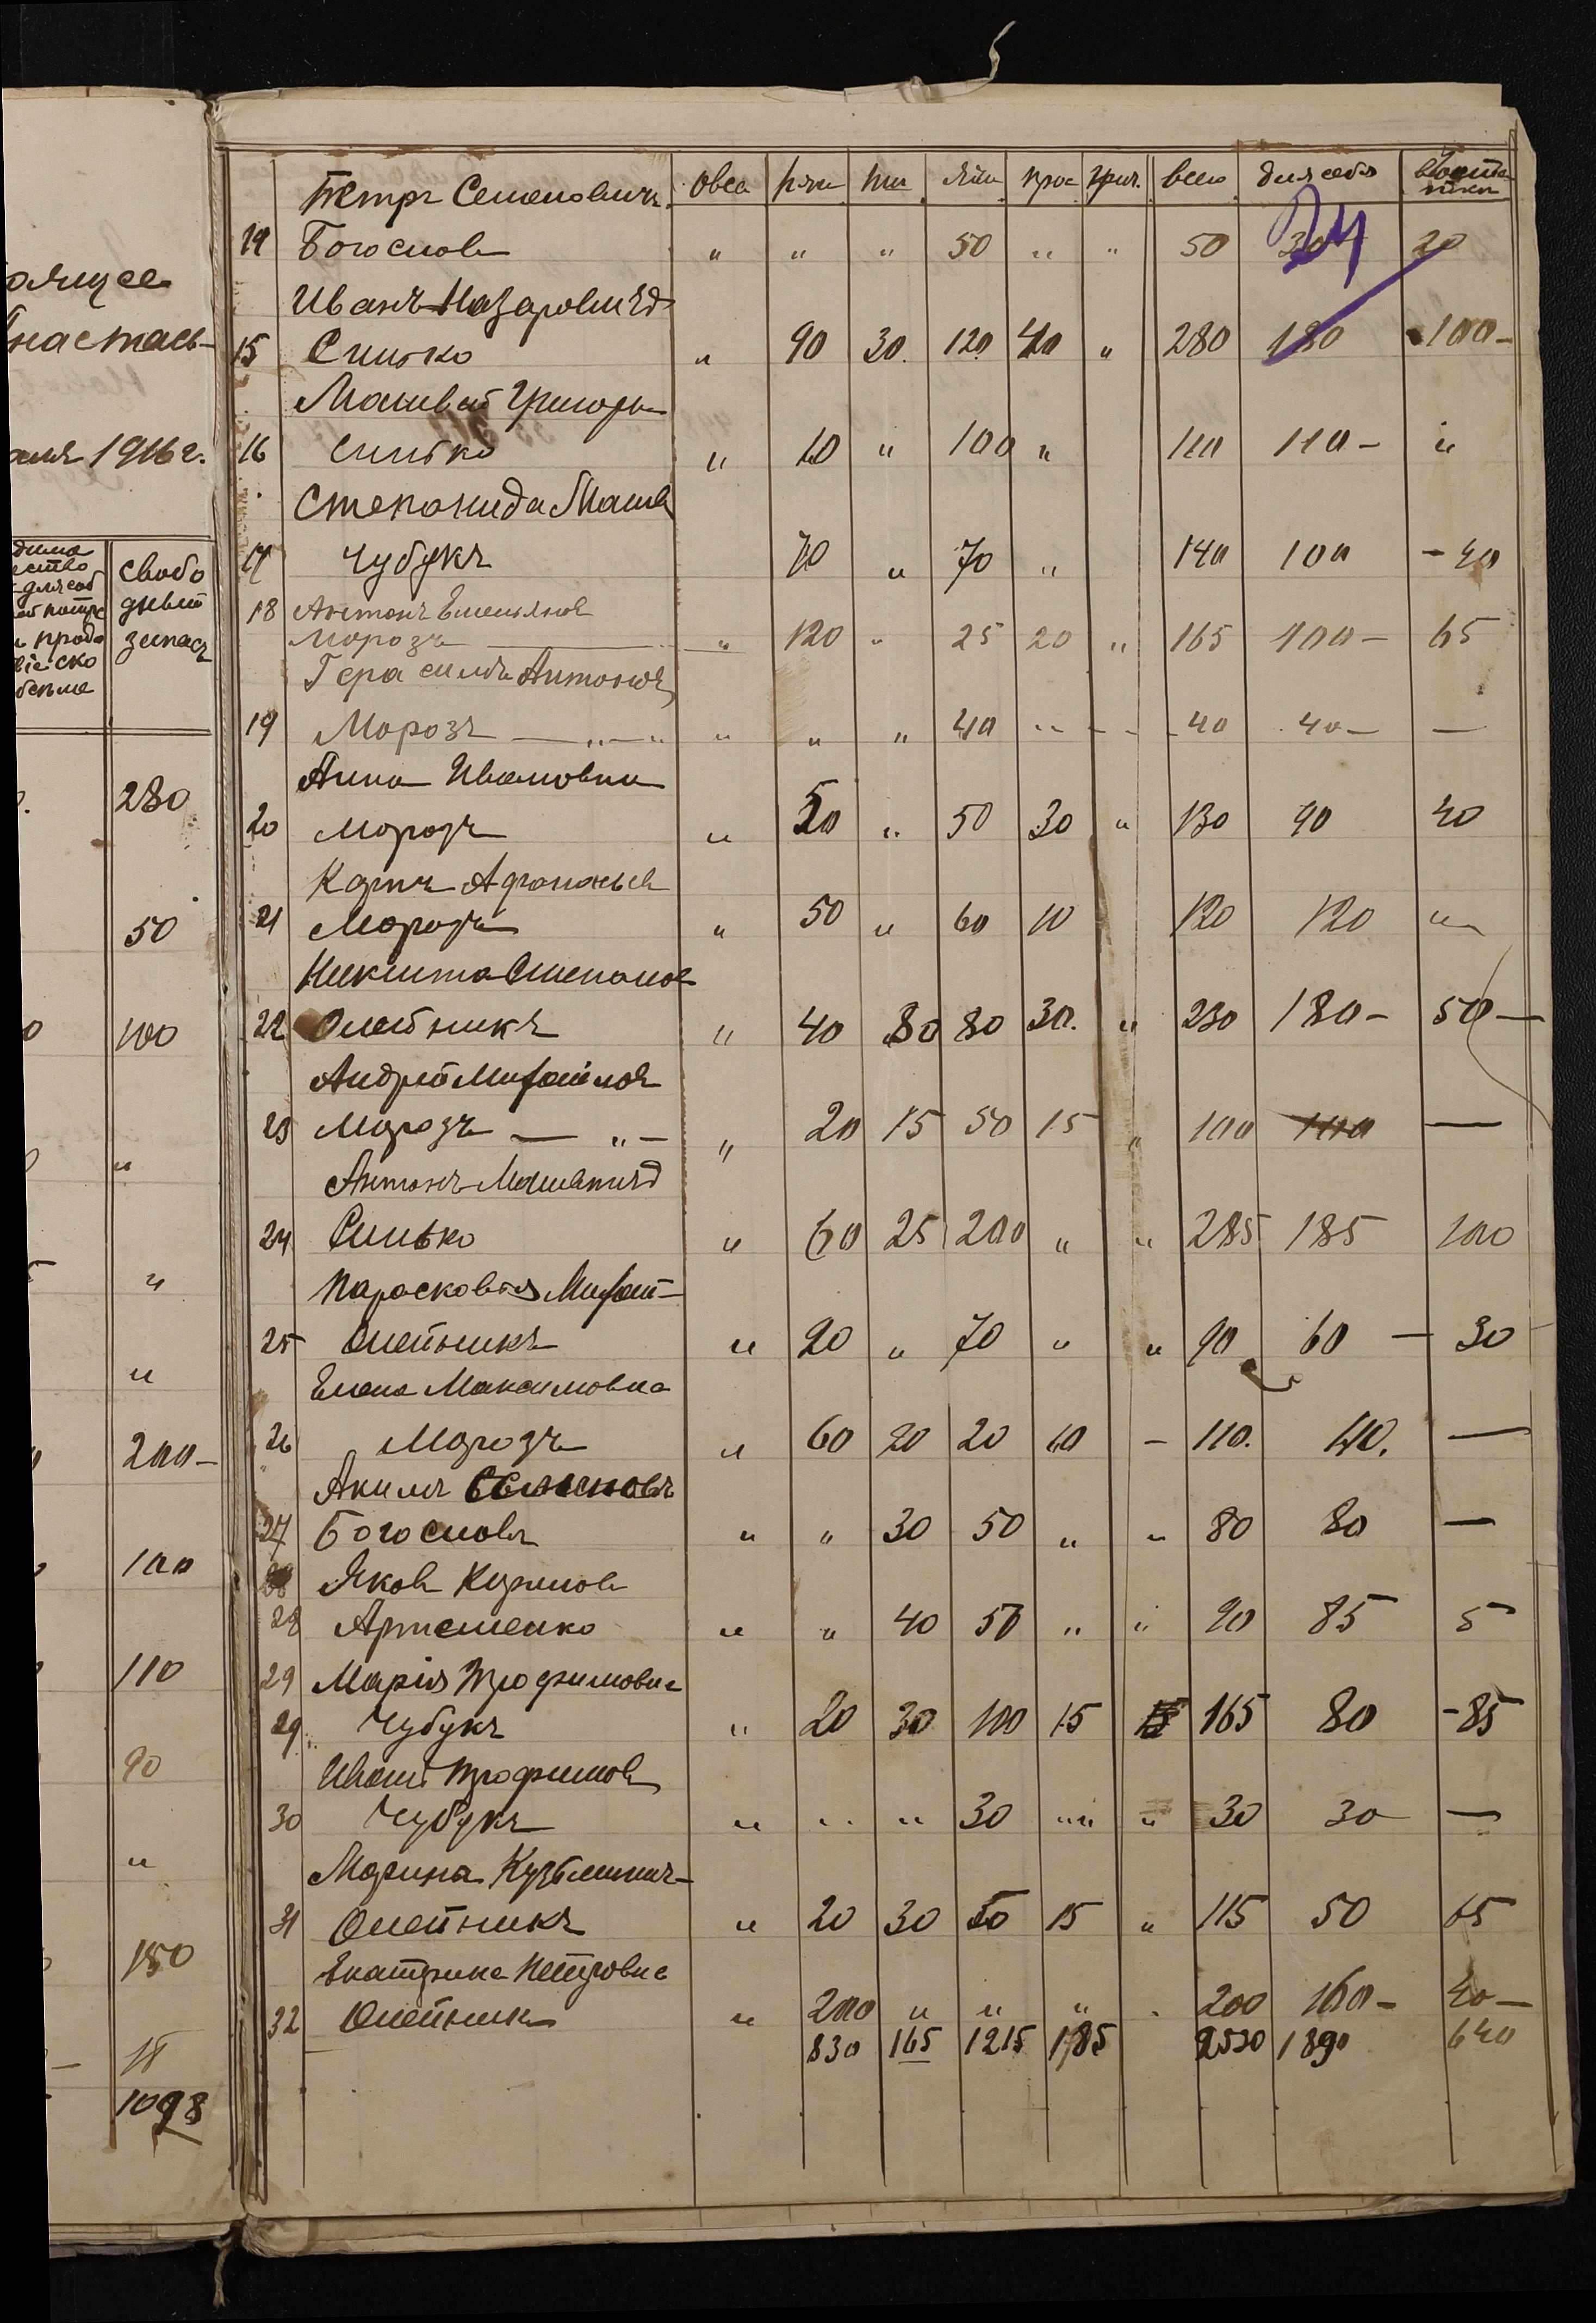 1916 г.
свобо
дный
запасъ
280
50
100
"
"
"
200-
100
110
90
"
150
1098
Петръ Семеновичъ Овса пше яч про греч. всего для себя
14 Богослов " " " 50 " " 50 20
24
Иванъ Назарович
15 Синько " 90 30. 120 40 " 280 180 100-
Матвей Григорь
16 Синько " 10 " 100 " 110 110- "
Степанида Матв
17 Чубукъ 70 " 70 " 140 100 -40
18 Антонъ Емельянов
Морозъ " 120 " 25 20 " 165 100- 65
Герасимъ Антонов
19 Морозъ — " — " " " " 40 " - - 40 40- —
Анна Ивановна
20 Морозъ " 50 " 50 30 " 130 90 40
Карпъ Афанасьев
21 Морозъ " 50 " 60 10 120 120 "
Никита Степанов
22 Олейникъ " 40 80 80 30. " 230 180- 50—
Андрей Михайлов
23 Морозъ — " — " 20 15 50 15 " 100 100 —
Антонъ Матв
24 Синько " 60 25 200 " " 285 185 100
Парасковья Михай-
25 Олейникъ " 20 " 70 " " 90 60 — 30
Елена Максимовна
26 Морозъ " 60 20 20 10 - 110. 110. —
Акимъ Семеновъ
27 Богословъ " " 30 50 " " 80 80 —
28 Яков Кирилов
28 Артеменко " " 40 50 " " 90 85 5
29 Марія Трофимовна
29 Чубукъ " 20 30 100 15 165 80 -85
Иванъ Трофимов
30 Чубукъ " " " 30 " " 30 30 —
Марина Кузьминич-
31 Олейникъ " 20 30 50 15 " 115 50 65
Екатрина Петровна
32 Олейникъ " 200 " " " - 200 160- 40—
830 165 1215 185 2530 1890 640